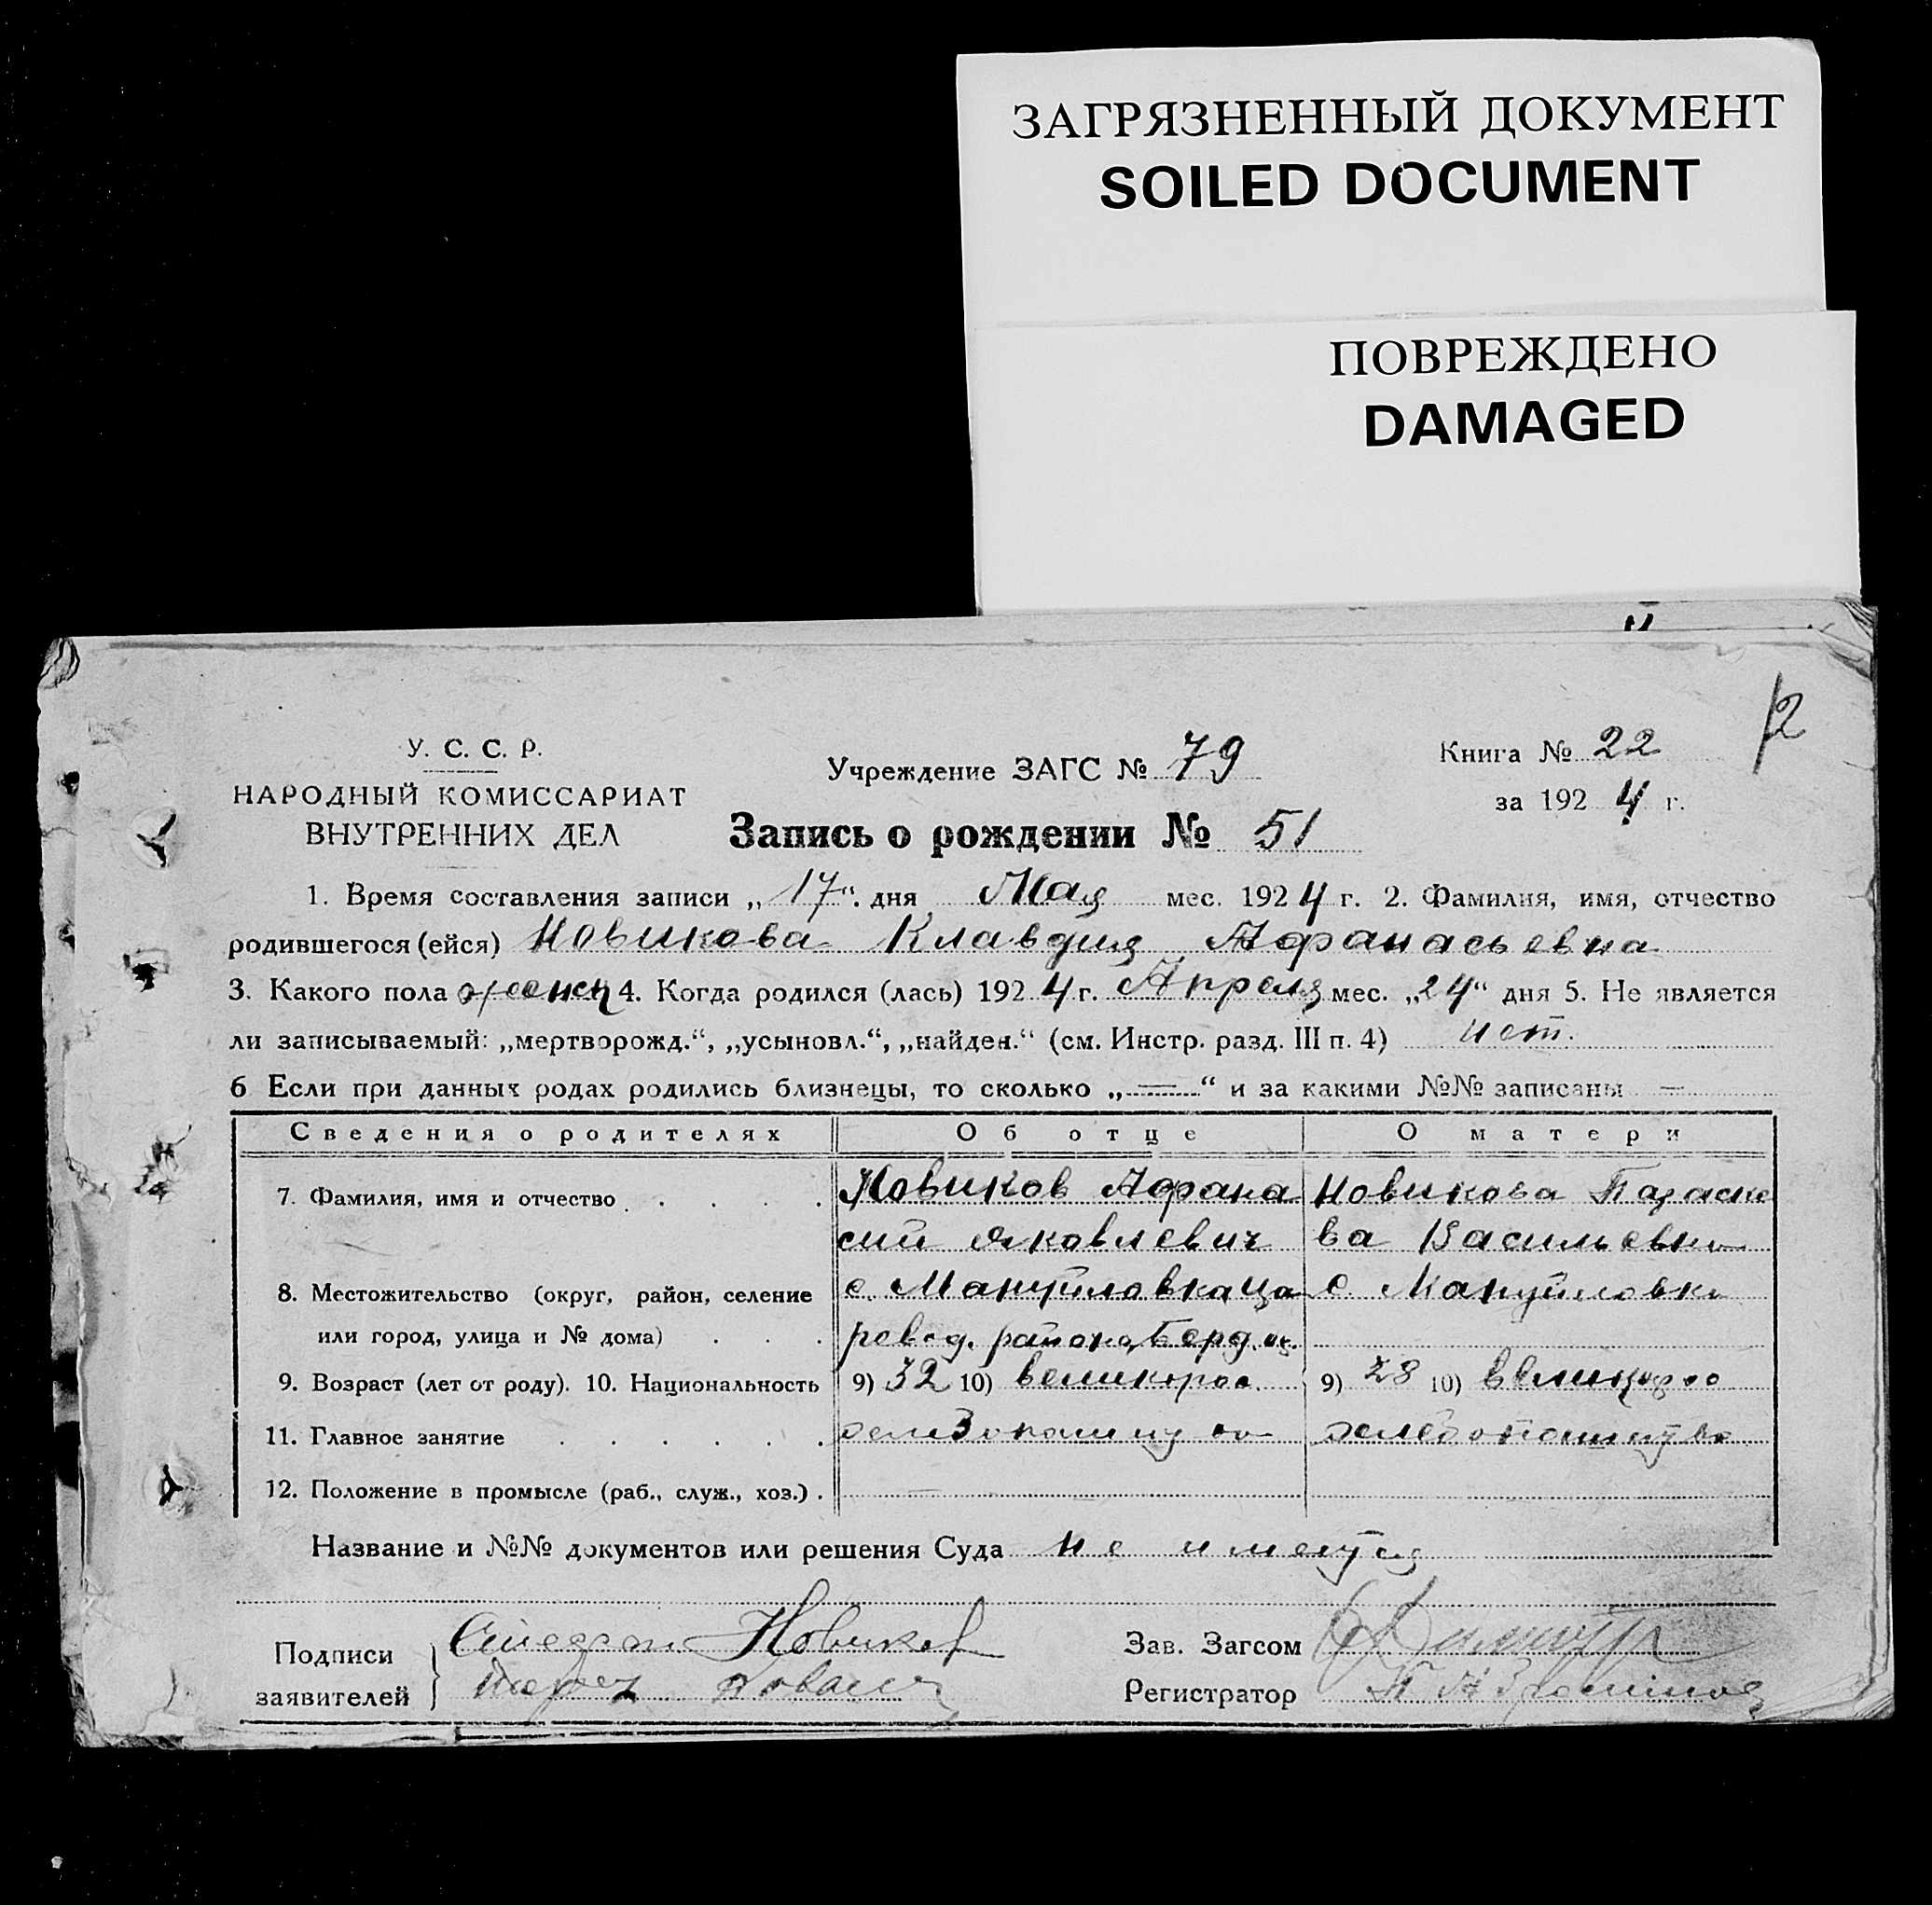 ЗАГРЯЗНЕННЫЙ ДОКУМЕНТ
SOILED DOCUMENT
ПОВРЕЖДЕНО
DAMAGED
У. С. С. Р.
НАРОДНЫЙ КОМИССАРИАТ
ВНУТРЕННИХ ДЕЛ
Учреждение ЗАГС № 79
Книга № 22
за 1924 г.
12
Запись о рождении № 51
1. Время составления записи „17“ дня Мая мес. 1924 г. 2. Фамилия, имя, отчество
родившегося (ейся) Новикова Клавдия Афанасьевна
3. Какого пола женск 4. Когда родился (лась) 1924 г. Апреля мес. „24“ дня 5. Не является
ли записываемый: „мертворожд.“, „усыновл.“, „найден.“ (см. Инстр. разд. III п. 4) нет.
6 Если при данных родах родились близнецы, то сколько „—“ и за какими №№ записаны —
Сведения о родителях Об отце О матери
7. Фамилия, имя и отчество Новиков Афана Новикова Параске
сий Яковлевич ва Васильевна
8. Местожительство (округ, район, селение с. Мануйловка Ца с. Мануйловка
или город, улица и № дома) ревод. района Берд. ок.
9. Возраст (лет от роду). 10. Национальность 9) 32 10) великорос 9) 28 10) великорос
11. Главное занятие
12. Положение в промысле (раб., служ., хоз.)
Название и №№ документов или решения Суда не имеутся
Подписи Новиков
заявителей
Зав. Загсом
Регистратор